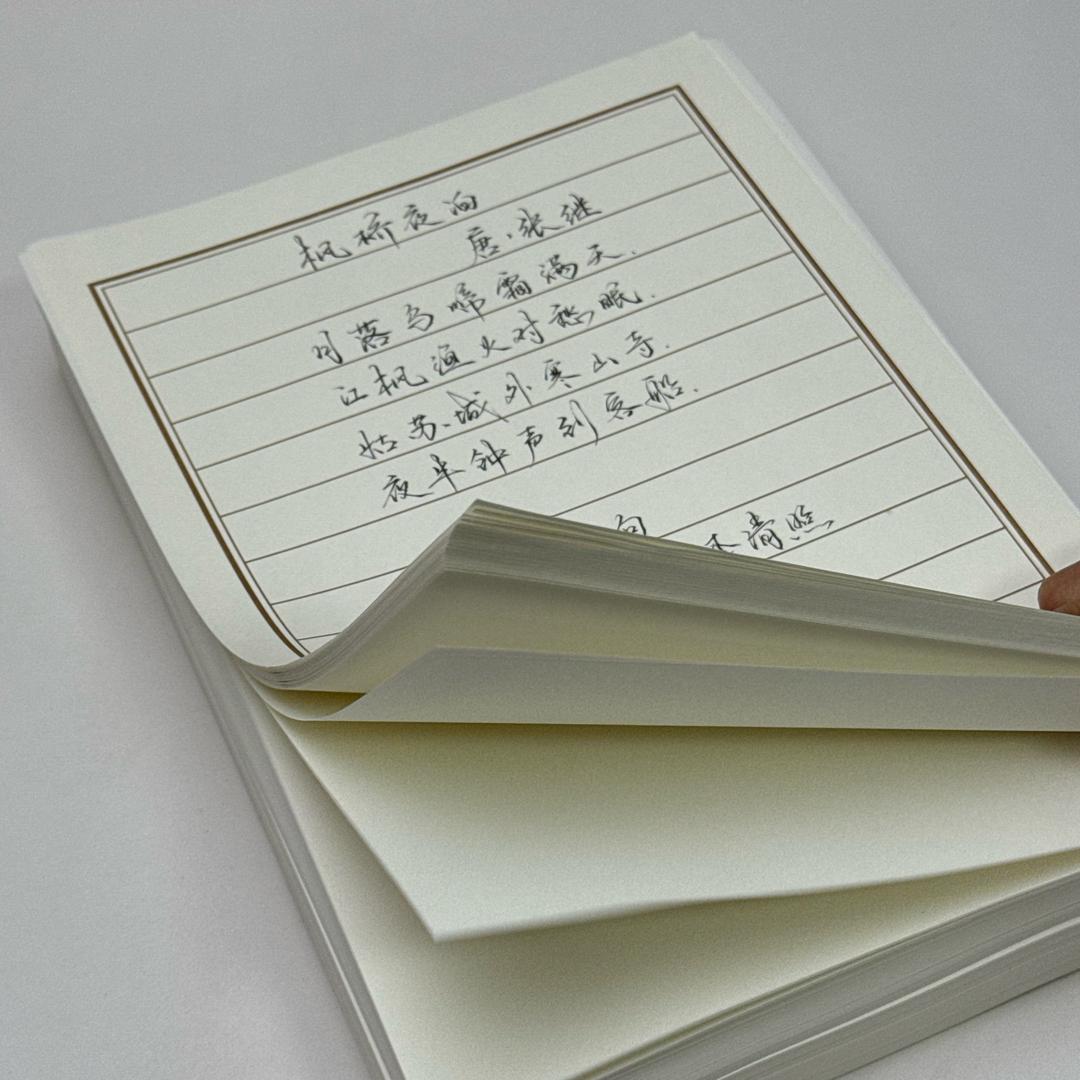 枫桥夜泊
唐·张继
月落乌啼霜满天.
江枫渔火对愁眠.
姑苏城外寒山寺.
夜半钟声到客船.
清照